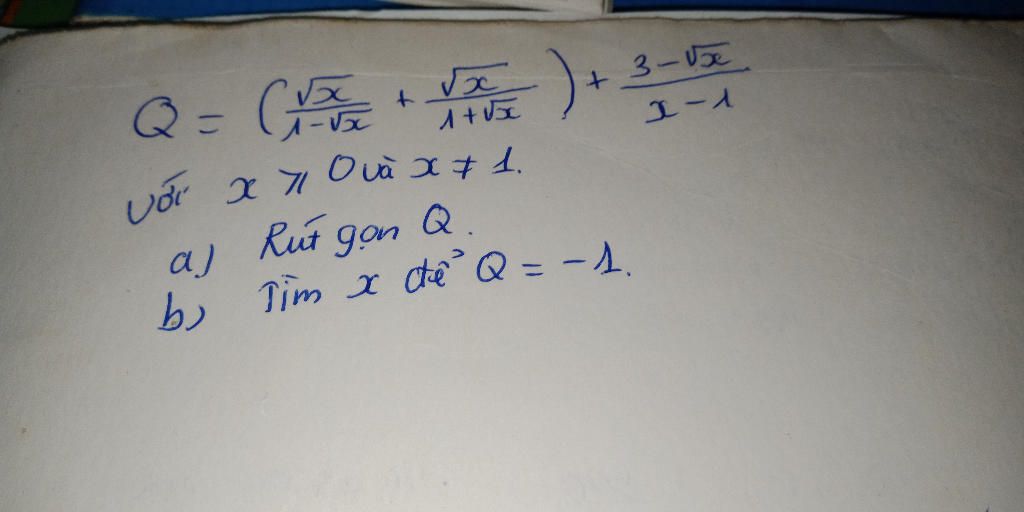 Q = (√x/(1-√x) + √x/(1+√x)) + (3-√x)/(x-1)
với x ⩾ 0 và x ≠ 1.
a) Rút gọn Q.
b) Tìm x để Q = -1.